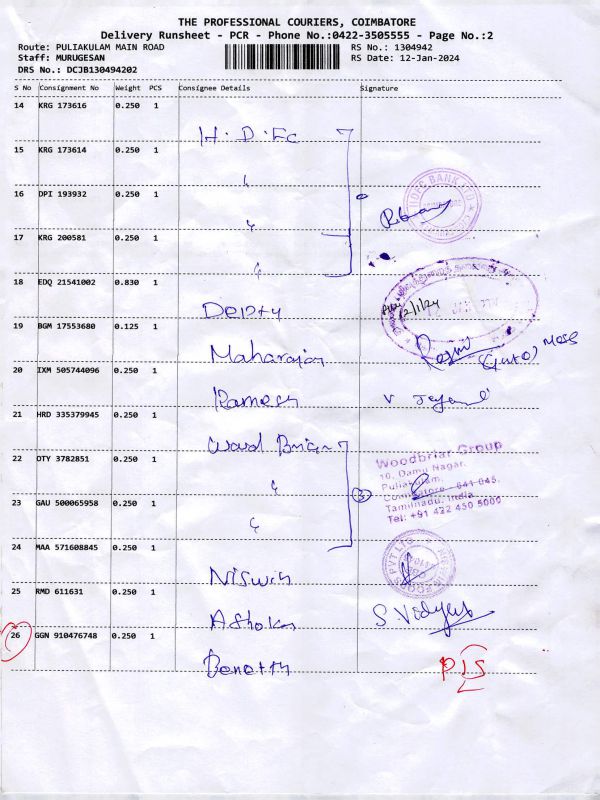 THE PROFESSIONAL COURIERS, COIMBATORE
Delivery Runsheet - PCR - Phone No.:0422-3505555 - Page No.:2
Route: PULIAKULAM MAIN ROAD
RS No.: 1304942
Staff: MURUGESAN
RS Date: 12-Jan-2024
DRS No.: DCJB130494202
S No Consignment No Weight PCS Consignee Details Signature
14 KRG 173616 0.250 1
H.D.Fc
15 KRG 173614 0.250 1
16 DPI 193932 0.250 1
HDFC BANK LTD
17 KRG 200581 0.250 1
18 EDQ 21541002 0.830 1
Depty
12/1/24
19 BGM 17553680 0.125 1
Maharajan
20 IXM 505744096 0.250 1
Ramesh
21 HRD 335379945 0.250 1
Ward Briar
22 OTY 3782851 0.250 1
Woodbriar Group
10, Damu Nagar,
Puliakulam,
Coimbatore - 641 045.
Tamilnadu, India
Tel: +91 422 430 5000
3
23 GAU 500065958 0.250 1
24 MAA 571608845 0.250 1
Niswin
25 RMD 611631 0.250 1
Ashoka
26 GGN 910476748 0.250 1